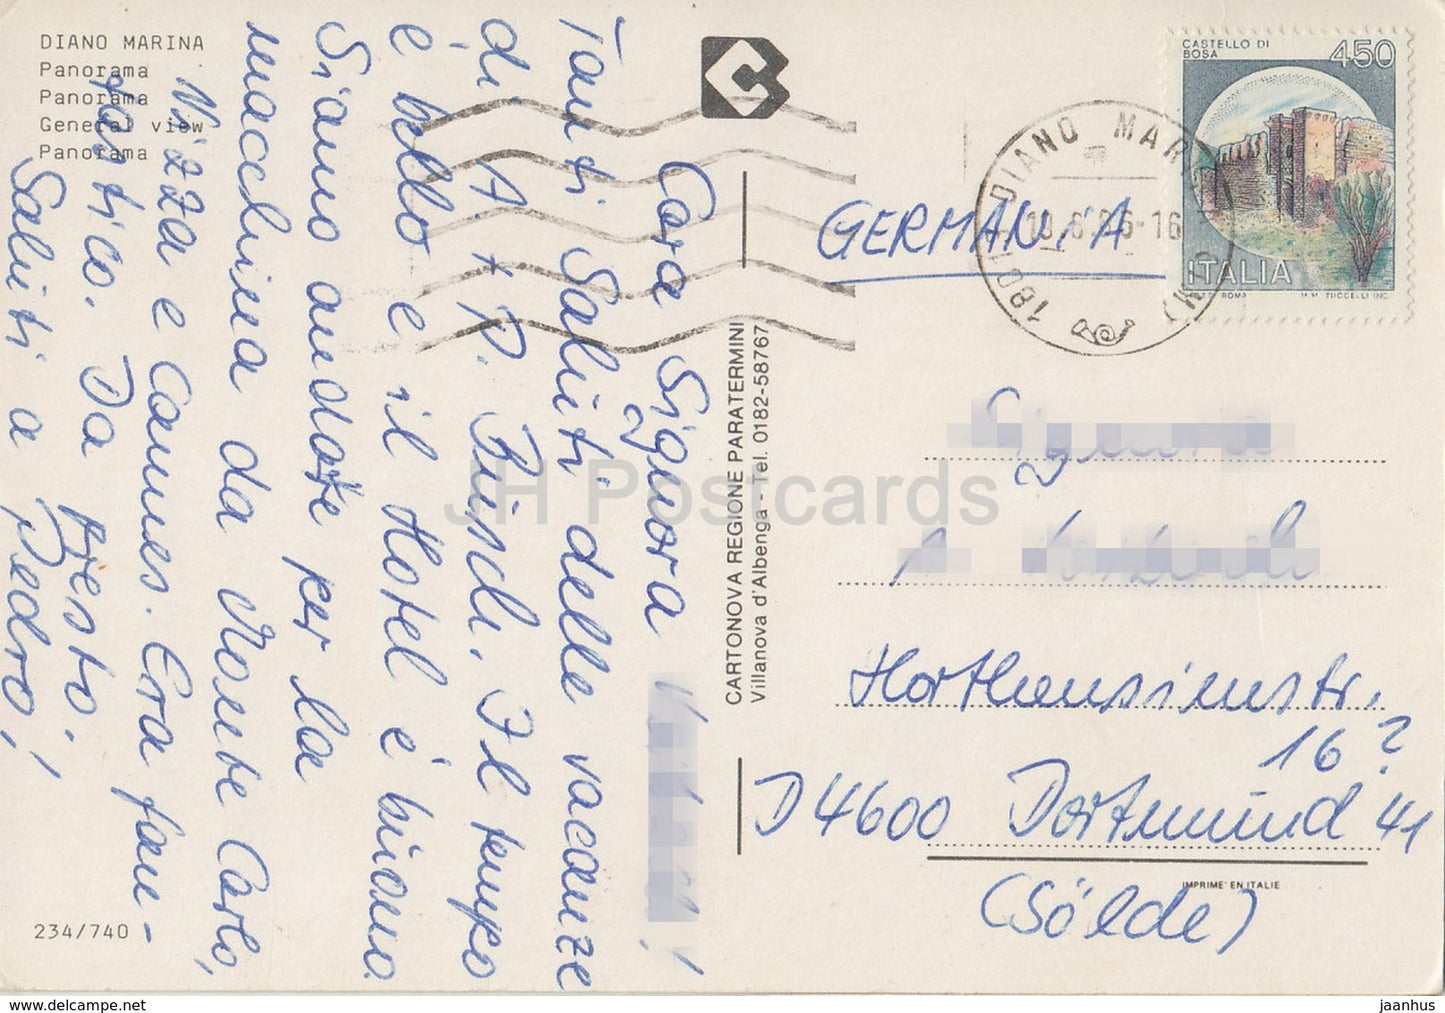 DIANO MARINA
Panorama
Panorama
General view
Panorama
Cara Signora !
Tanti Saluti delle vacanze
di A + P. Il tempo
è bello e il Hotel è buono.
Siamo andate per la
macchina da Monte Carlo,
Nizza e Cannes. Era fan-
tastico. Da presto.
Saluti a Pedro!
234/740
CARTONOVA REGIONE PARATERMINI
Villanova d'Albenga - Tel. 0182-58767
CASTELLO DI
BOSA
450
ITALIA
ROMA M.M. TUCCELLI INC.
DIANO MAR
GERMANIA
Signora
16?
D 4600 Dortmund 41
(Sölde)
IMPRIME' EN ITALIE
JH Postcards
www.delcampe.net
jaanhus